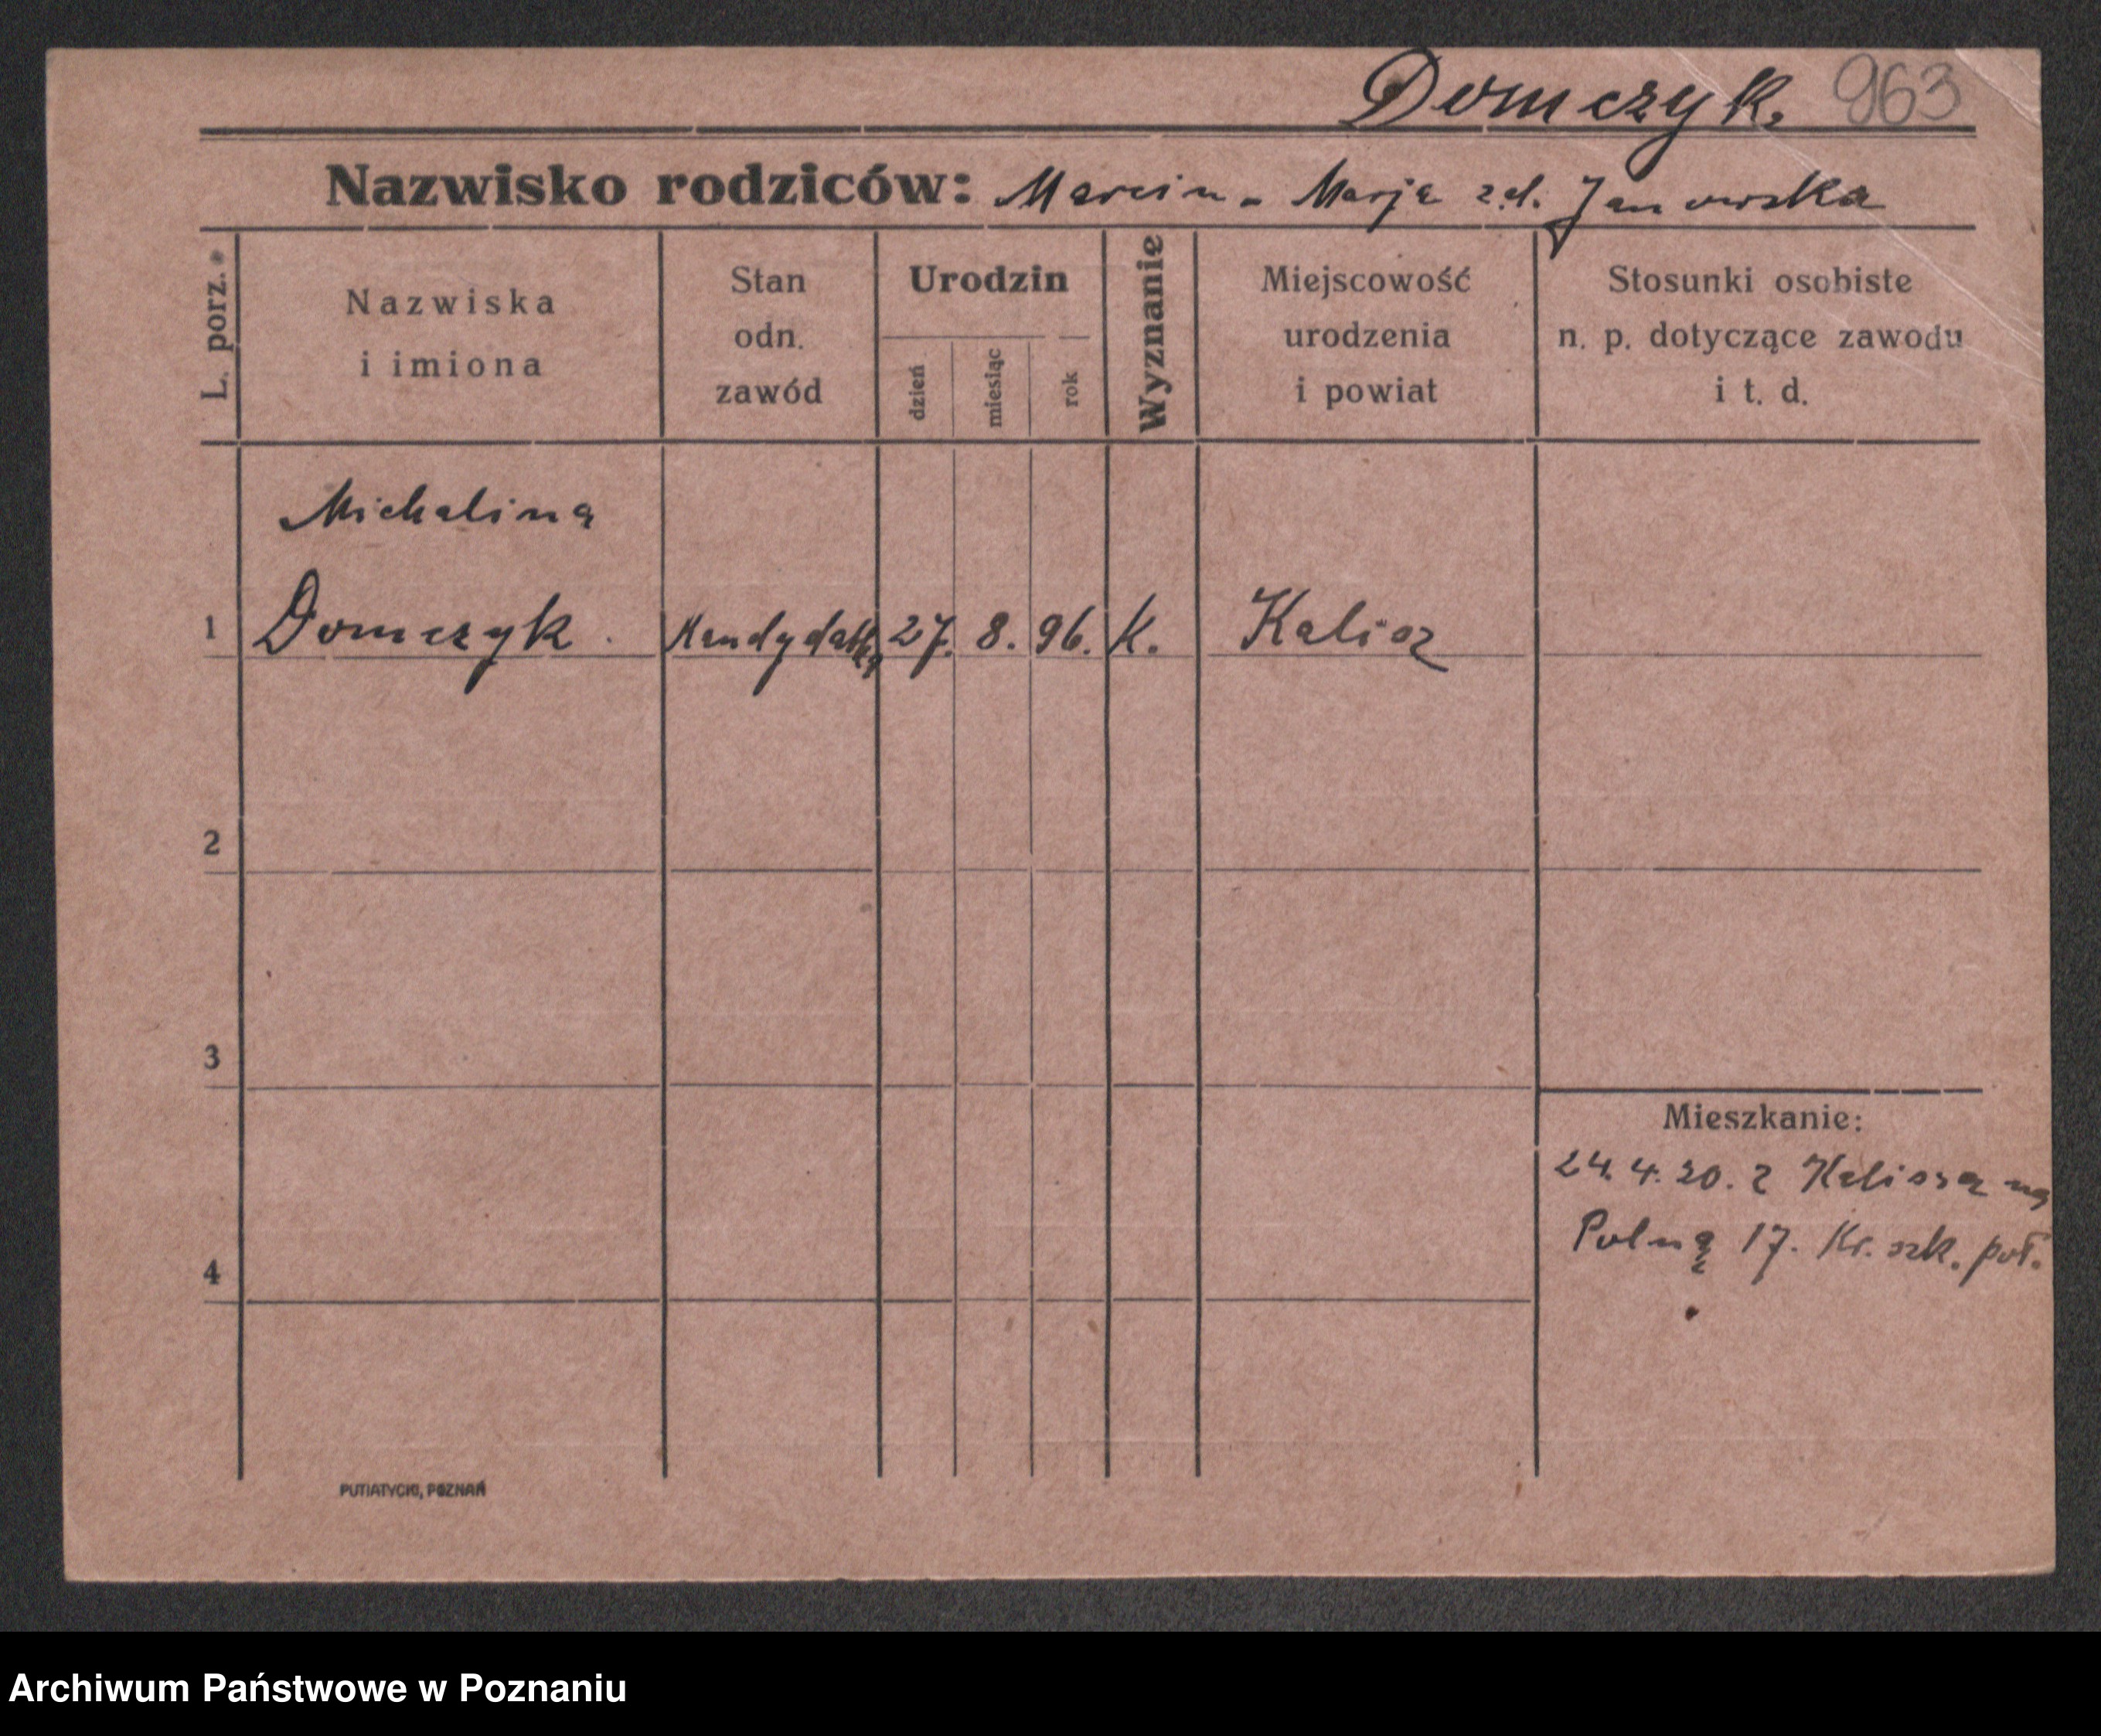 Domczyk. 963
Nazwisko rodziców: Marcin - Marja z.d. Janowska
L. porz.
Nazwiska
i imiona
Stan
odn.
zawód
Urodzin
dzień
miesiąc
rok
Wyznanie
Miejscowość
urodzenia
i powiat
Stosunki osobiste
n. p. dotyczące zawodu
i t. d.
Michalina
1 Domczyk. Kandydatka 27. 8. 96. K. Kalisz
2
3
4
Mieszkanie:
24.4.20. z Kalisza na
Polną 17. Kr. szk. poł.
PUTIATYCKI, POZNAŃ
Archiwum Państwowe w Poznaniu